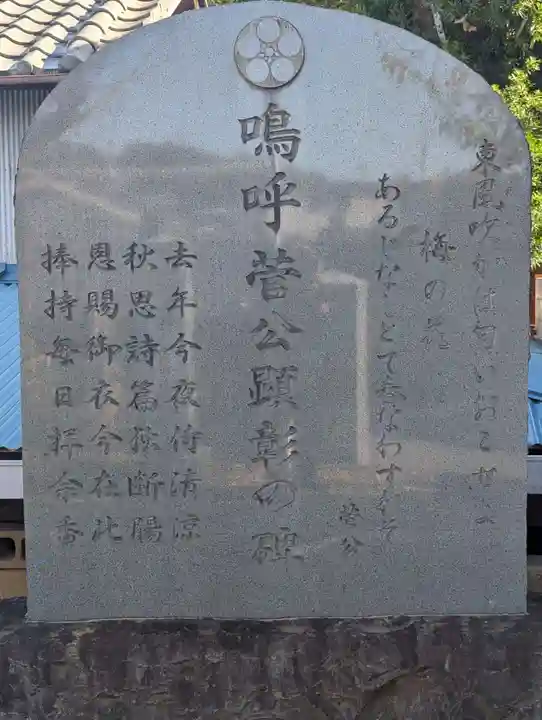 東風吹かば匂いおこせよ
梅の花
あるじなしとて春なわすれそ
菅公
嗚呼菅公顕彰の碑
去年今夜侍清涼
秋思詩篇独断腸
恩賜御衣今在此
捧持毎日拝余香